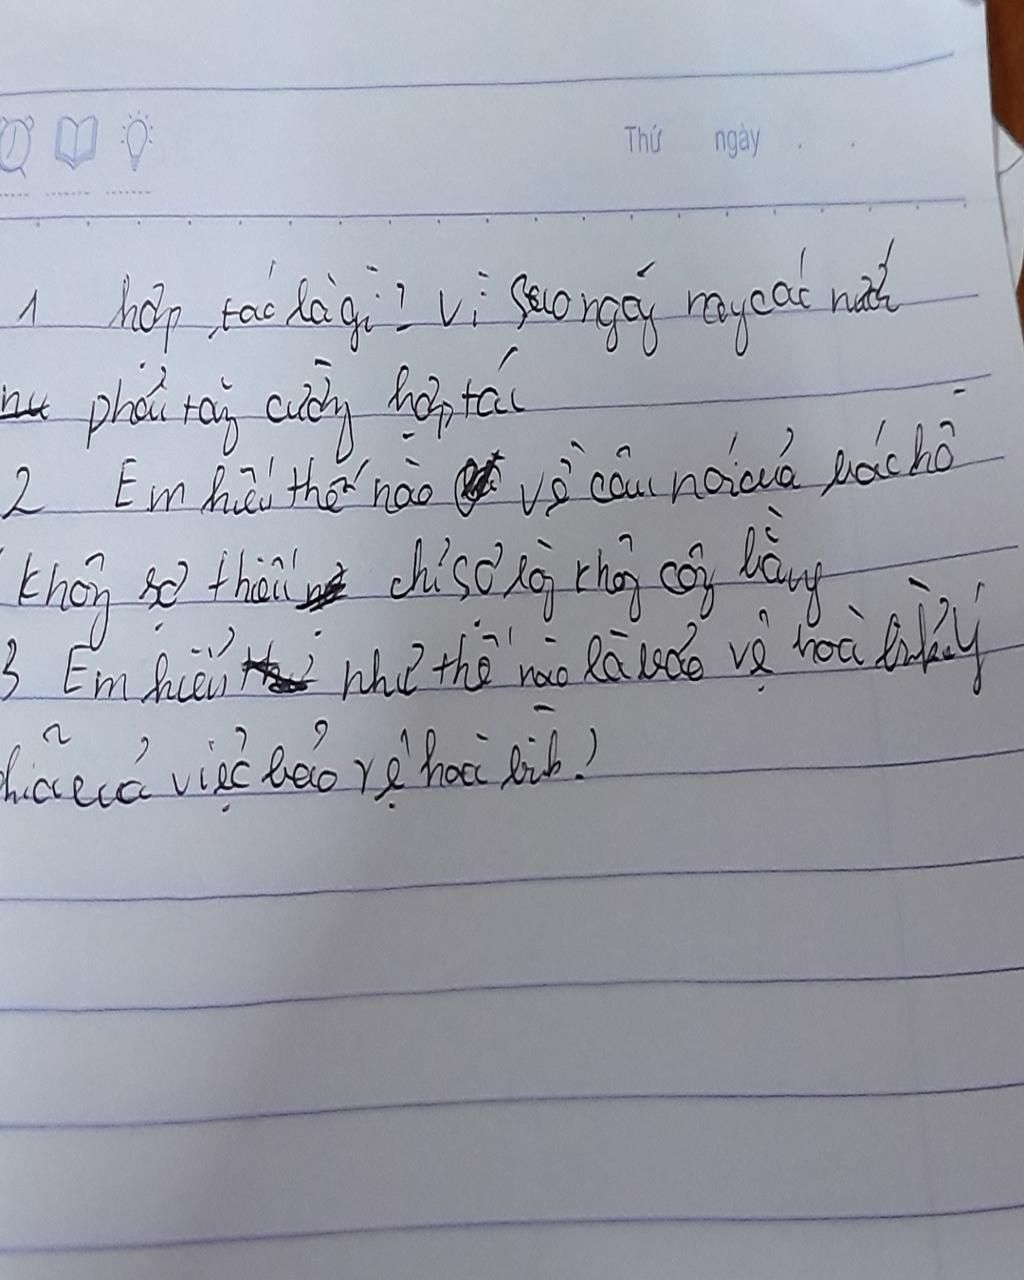 Thứ ngày . .
1 hợp tác là gì? Vì sao ngày nay các nước
phải tăng cường hợp tác
2 Em hiểu thế nào về câu nói của bác hồ
không sợ thiếu chỉ sợ không công bằng
3 Em hiểu như thế nào là bảo vệ hoà bình ý
của việc bảo vệ hoà bình?